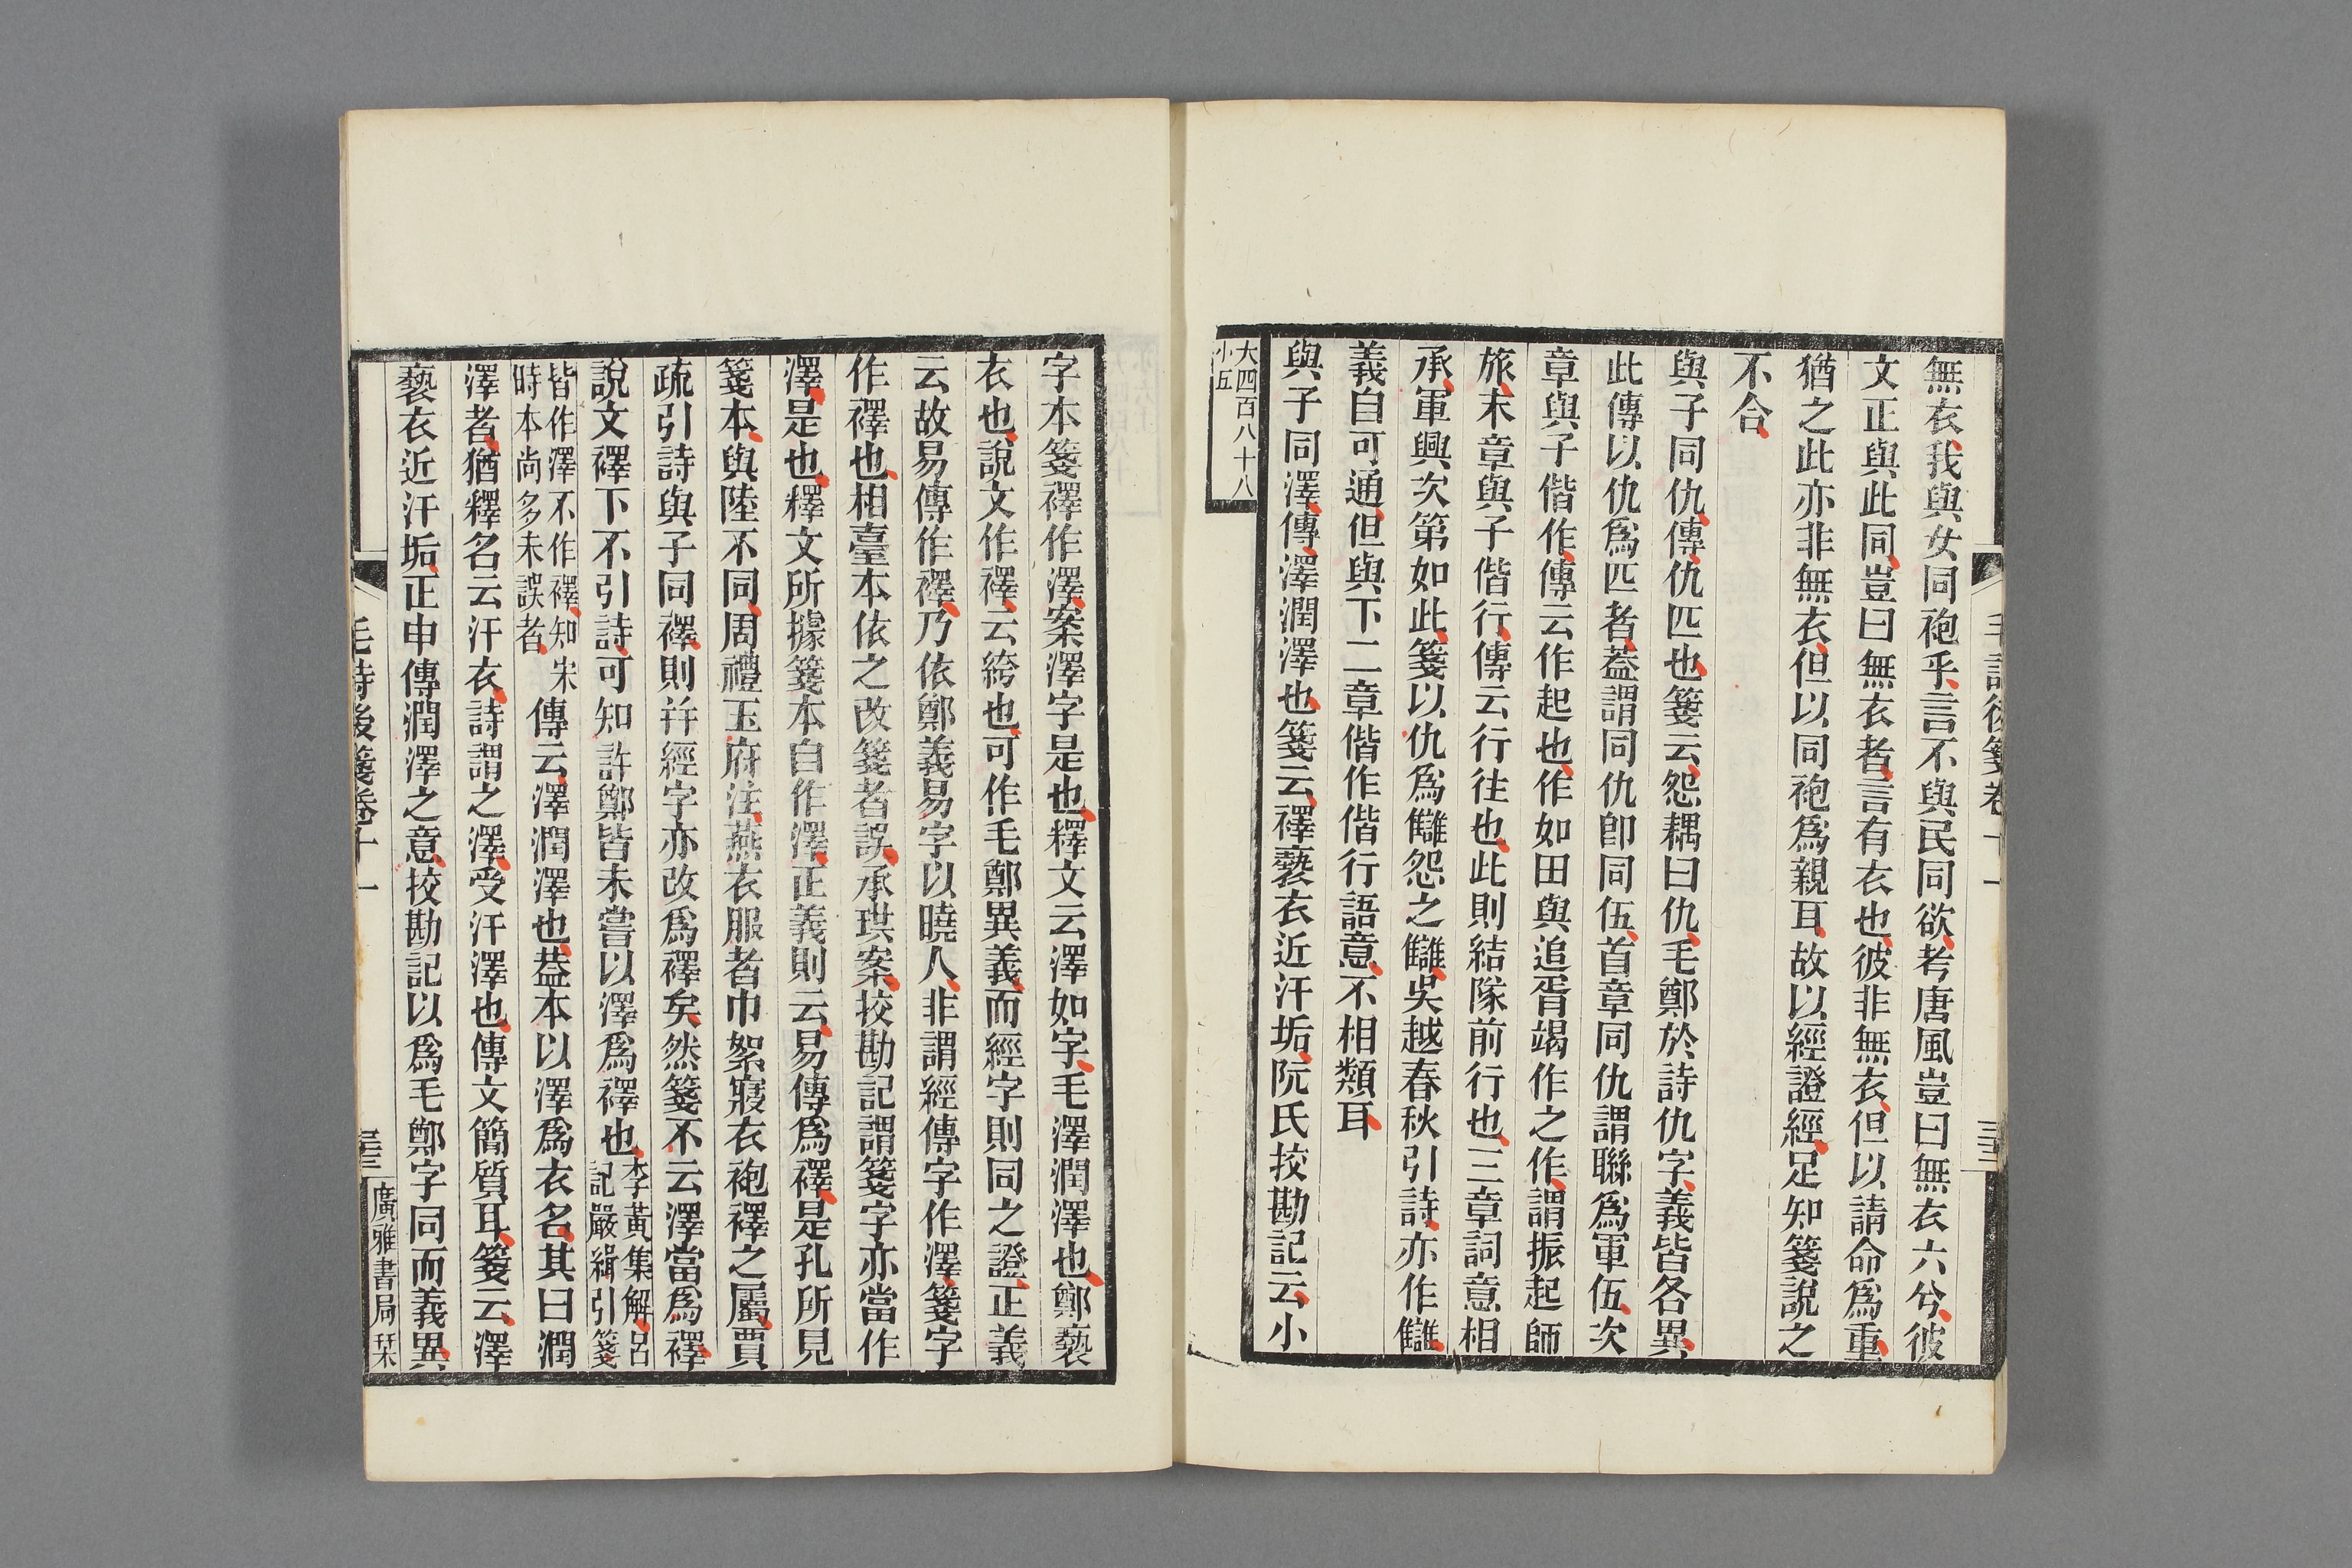 毛詩後箋卷十一
三三
無衣我與女同袍乎言不與民同欲考唐風豈曰無衣六兮彼
文正與此同豈曰無衣者言有衣也彼非無衣但以請命爲重
猶之此亦非無衣但以同袍爲親耳故以經證經足知箋說之
不合
與子同仇傳仇匹也箋云怨耦曰仇毛鄭於詩仇字義皆各異
此傳以仇爲匹者葢謂同仇卽同伍首章同仇謂聯爲軍伍次
章與子偕作傳云作起也作如田與追胥竭作之作謂振起師
旅末章與子偕行傳云行往也此則結隊前行也三章詞意相
承軍興次第如此箋以仇爲讎怨之讎吳越春秋引詩亦作讎
義自可通但與下二章偕作偕行語意不相類耳
與子同澤傳澤潤澤也箋云襗褻衣近汙垢阮氏挍勘記云小
大四百八十八
小五
字本箋襗作澤案澤字是也釋文云澤如字毛澤潤澤也鄭褻
衣也說文作襗云絝也可作毛鄭異義而經字則同之證正義
云故易傳作襗乃依鄭義易字以曉人非謂經傳字作澤箋字
作襗也相臺本依之改箋者誤承珙案挍勘記謂箋字亦當作
澤是也釋文所據箋本自作澤正義則云易傳爲襗是孔所見
箋本與陸不同周禮玉府注燕衣服者巾絮寢衣袍襗之屬賈
疏引詩與子同襗則幷經字亦改爲襗矣然箋不云澤當爲襗
說文襗下不引詩可知許鄭皆未嘗以澤爲襗也李黃集解呂
記嚴緝引箋
皆作澤不作襗知宋
時本尚多未誤者傳云澤潤澤也葢本以澤爲衣名其曰潤
澤者猶釋名云汗衣詩謂之澤受汗澤也傳文簡質耳箋云澤
褻衣近汙垢正申傳潤澤之意挍勘記以爲毛鄭字同而義異
毛詩後箋卷十一
三三
廣雅書局栞